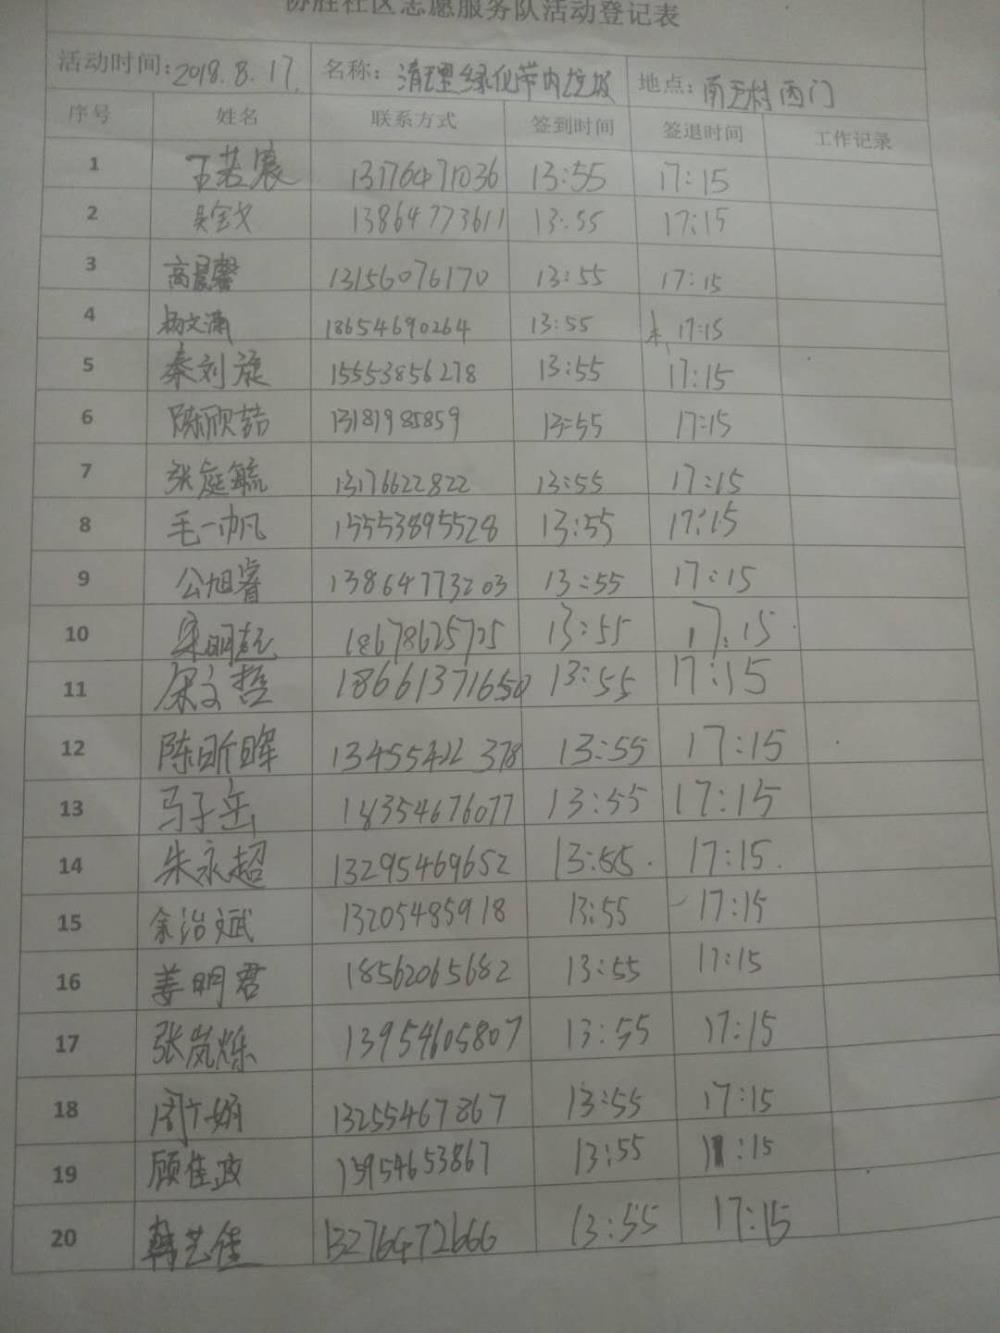 协胜社区志愿服务队活动登记表
活动时间: 2018.8.17. 名称: 清理绿化带内垃圾 地点: 南王村西门
序号 姓名 联系方式 签到时间 签退时间 工作记录
1 13176471036 13:55 17:15
2 13864773611 13:55 17:15
3 高晨馨 13156076170 13:55 17:15
4 杨文潇 18654690264 13:55 17:15
5 秦刘旋 15553856278 13:55 17:15
6 陈欣喆 13181985859 13:55 17:15
7 张庭毓 13176622822 13:55 17:15
8 毛一帆 15553895528 13:55 17:15
9 公旭睿 13864773203 13:55 17:15
10 宋明 18678625725 13:55 17:15
11 文哲 18661371650 13:55 17:15
12 陈昕晖 13455422378 13:55 17:15
13 马子岳 18354676077 13:55 17:15
14 朱永超 13295469652 13:55 17:15
15 余治斌 13205485918 13:55 17:15
16 姜明君 18562065682 13:55 17:15
17 张岚烁 13954605807 13:55 17:15
18 周 娟 13255467867 13:55 17:15
19 顾佳政 13954653867 13:55 17:15
20 韩艺佳 13276472666 13:55 17:15